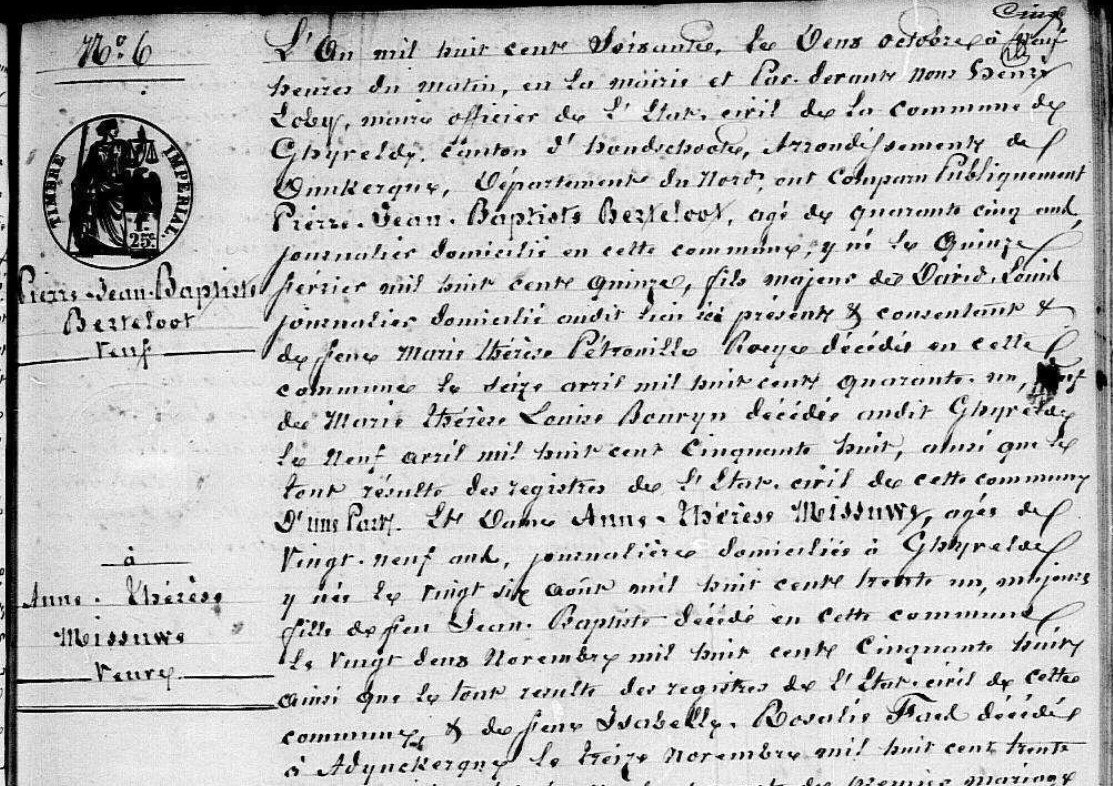 N.o 6
TIMBRE IMPÉRIAL.
1 F.
25c.
Pierre-Jean-Baptiste
Berteloot
Veuf
à
Anne-Thérèse
Missuwe
Veuve
Cinq
L'An mil huit cent Soixante, le Deux octobre à neuf
heures du matin, en la mairie et Par-devant nous Henri
Loby, maire officier de L'Etat-civil de la commune de
Ghyvelde, Canton d'hondschoote, Arrondissement de
Dunkerque, Département du Nord, ont Comparu Publiquement
Pierre-Jean-Baptiste Berteloot, agé de quarante cinq ans,
journalier domicilié en cette commune, y né le Quinze
février mil huit cent quinze, fils majeur de David-Louis
journalier domicilié audit lieu ici présent & consentant &
de feue Marie thérèse Pétronille décédée en cette
commune le seize avril mil huit cent quarante-un, veuf
de Marie thérèse Louise Bouryn décédée audit Ghyvelde
le neuf avril mil huit cent Cinquante huit, ainsi que le
tout résulte des registres de L'Etat-civil de cette commune
D'une Part. Et Dame Anne-Thérèse Missuwe, agée de
Vingt-neuf ans, journalière domiciliée à Ghyvelde
y née le vingt six août mil huit cent trente un, majeure
fille de feu Jean-Baptiste décédé en cette commune
le Vingt deux Novembre mil huit cent Cinquante huit
ainsi que le tout résulte des registres de L'Etat-civil de cette
commune, & de feue Isabelle-Rosalie décédée
à Adynckerque le treize novembre mil huit cent trente
premier mariage